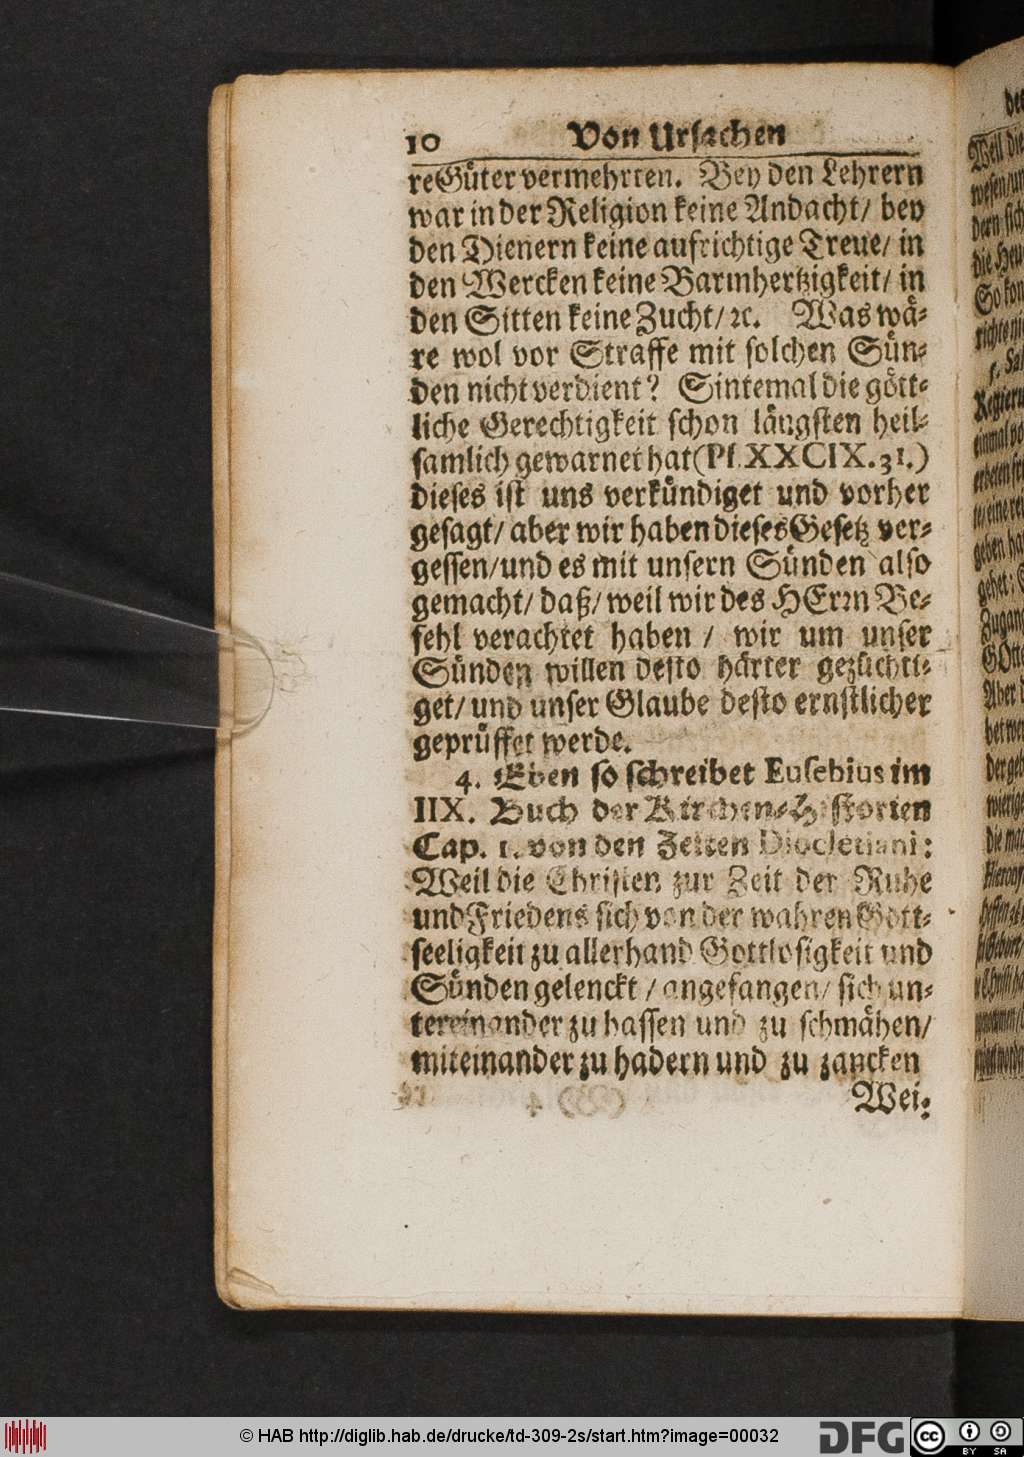 10 Von Ursachen
re Güter vermehrten. Bey den Lehrern
war in der Religion keine Andacht/ bey
den Dienern keine aufrichtige Treue/ in
den Wercken keine Barmhertzigkeit/ in
den Sitten keine Zucht/ ꝛc. Was wä-
re wol vor Straffe mit solchen Sün-
den nicht verdient? Sintemal die gött-
liche Gerechtigkeit schon längsten heil-
samlich gewarnet hat (Ps. XXCIX. 31.)
dieses ist uns verkündiget und vorher
gesagt/ aber wir haben dieses Gesetz ver-
gessen/ und es mit unsern Sünden also
gemacht/ daß/ weil wir des HErrn Be-
fehl verachtet haben / wir um unser
Sünden willen desto härter gezüchti-
get/ und unser Glaube desto ernstlicher
geprüffet werde.
4. Eben so schreibet Eusebius im
IIX. Buch der Kirchen-Historien
Cap. 1. von den Zeiten Diocletiani:
Weil die Christen zur Zeit der Ruhe
und Friedens sich von der wahren Gott-
seeligkeit zu allerhand Gottlosigkeit und
Sünden gelenckt / angefangen/ sich un-
tereinander zu hassen und zu schmähen/
miteinander zu hadern und zu zancken
Wei-
© HAB http://diglib.hab.de/drucke/td-309-2s/start.htm?image=00032
DFG
cc BY SA